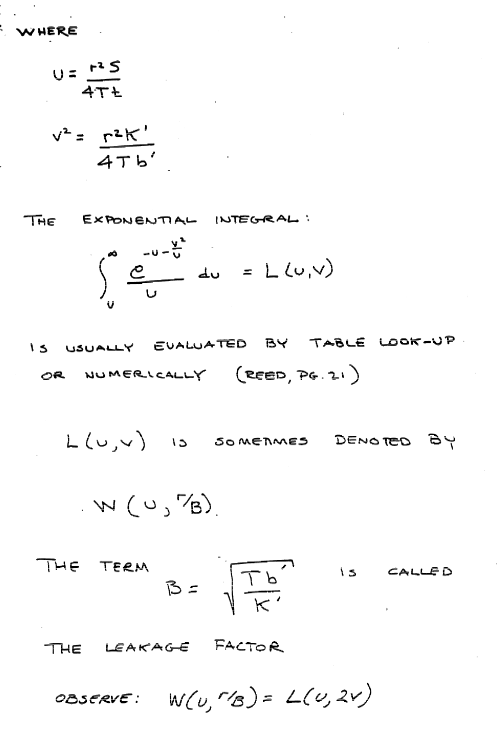 WHERE
U = r²S / 4Tt
v² = r²K' / 4Tb'
THE EXPONENTIAL INTEGRAL:
∫_U^∞ e^(-U-v²/U) / U du = L(U,V)
IS USUALLY EVALUATED BY TABLE LOOK-UP
OR NUMERICALLY (REED, PG. 21)
L(U,V) IS SOMETIMES DENOTED BY
W(U, r/B).
THE TERM B = √(Tb' / K') IS CALLED
THE LEAKAGE FACTOR
OBSERVE: W(U, r/B) = L(U, 2V)